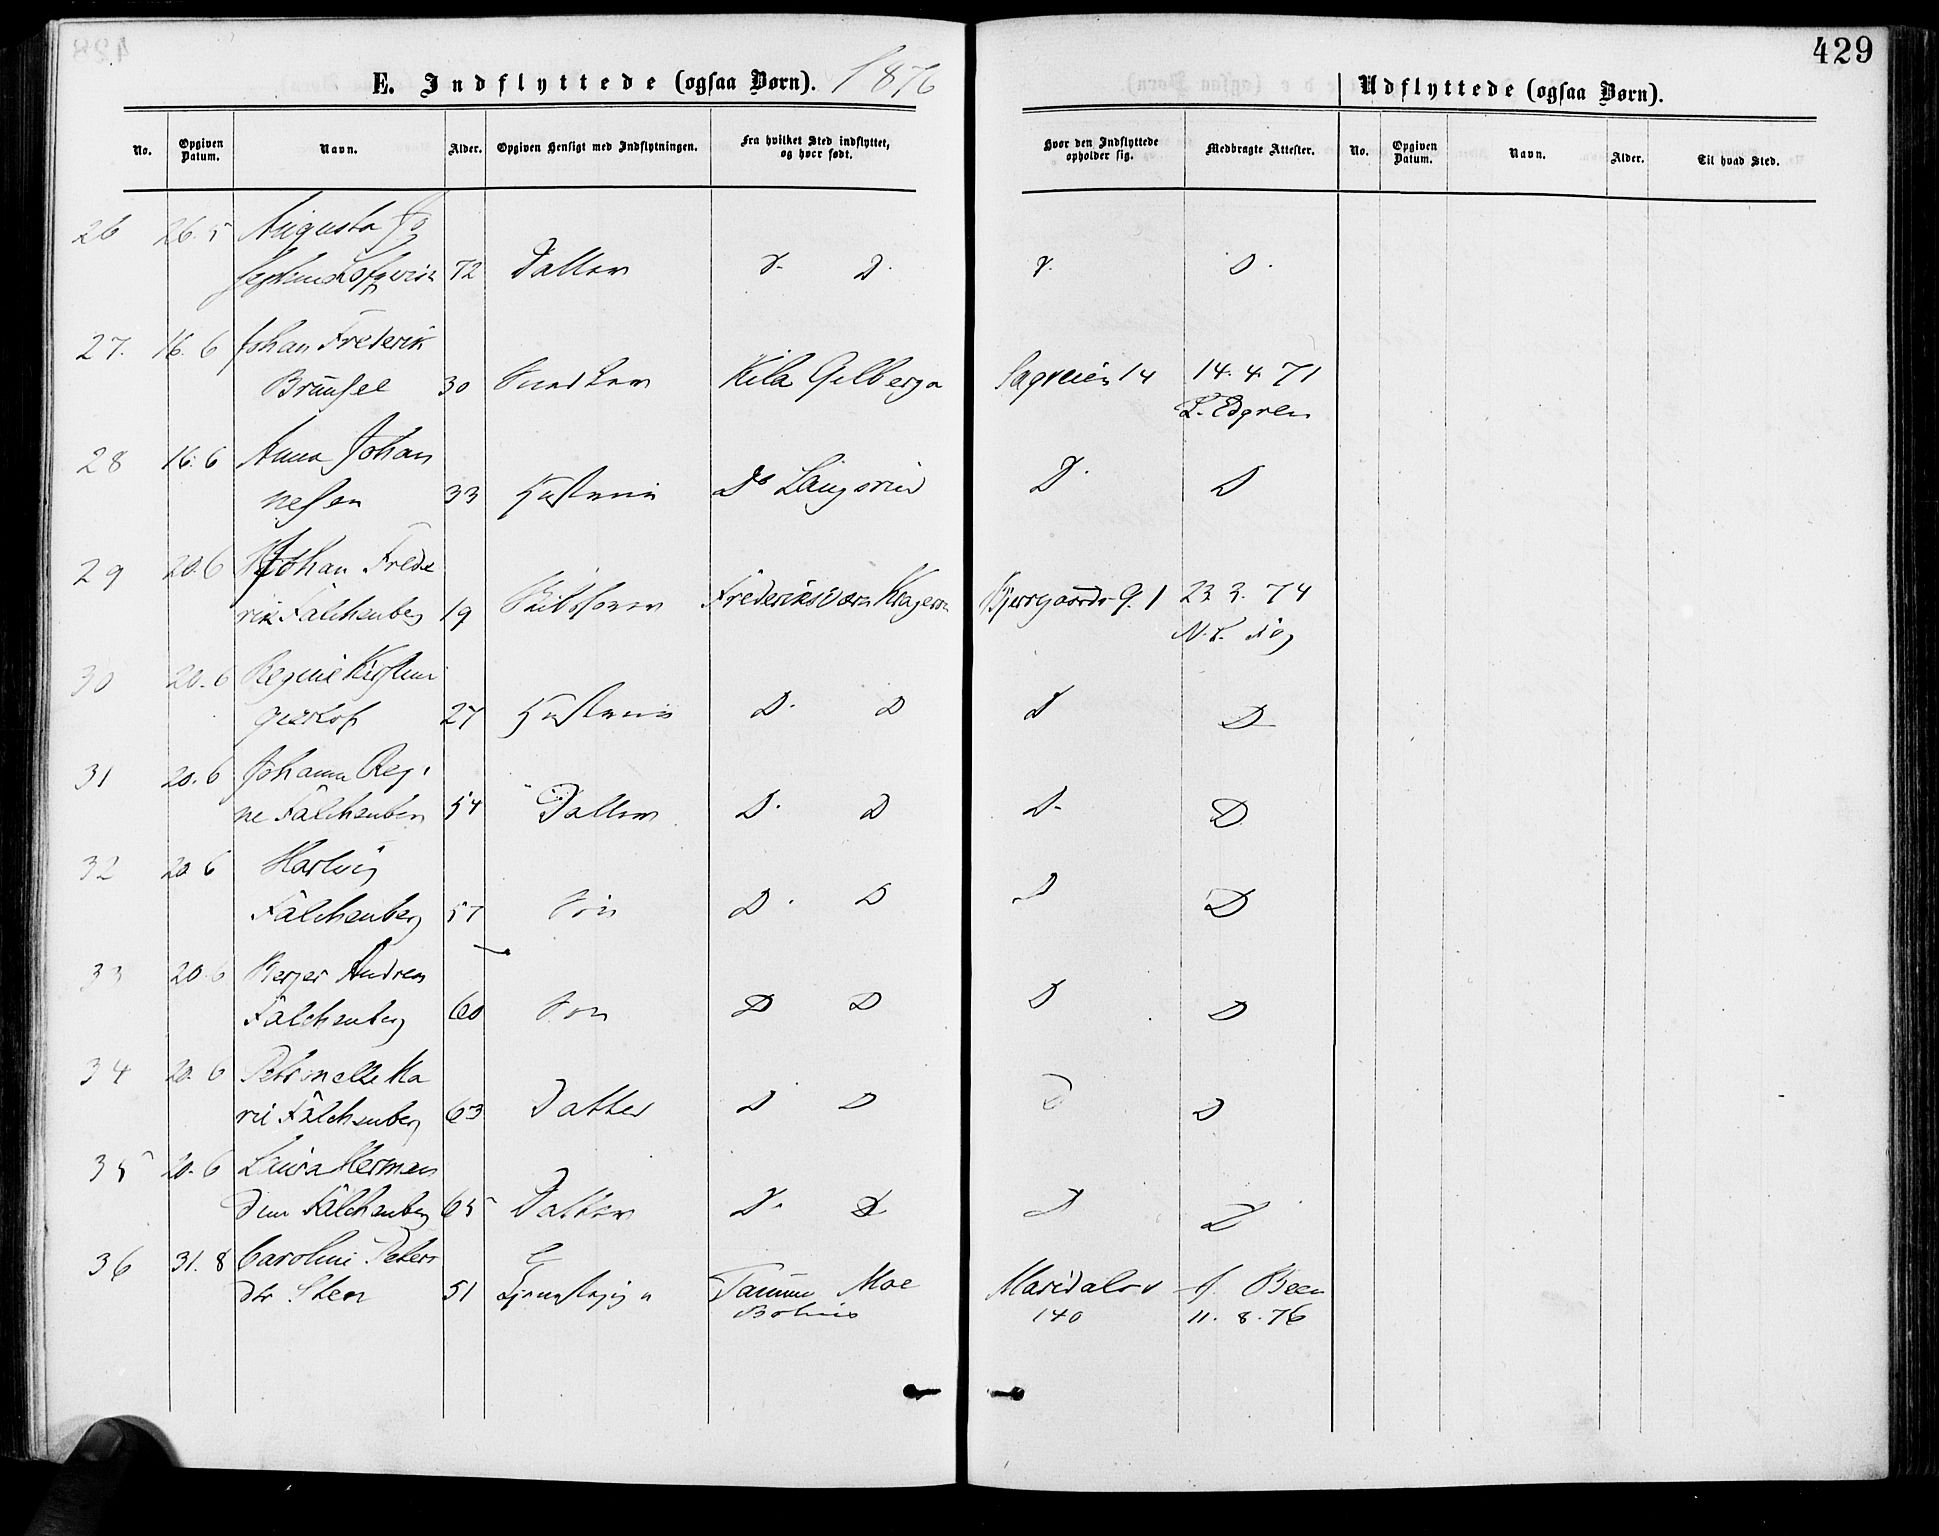 429
E. Indflyttede (ogsaa Børn). 1876
Udflyttede (ogsaa Børn).
No. Opgiven Datum. Navn. Alder. Opgiven Hensigt med Indflytningen. Fra hvilket Sted indflyttet, og hvor født. Hvor den Indflyttede opholder sig. Medbragte Attester. No. Opgiven Datum. Navn. Alder. Til hvad Sted.
26 26. 5 Augusta Jo
72 Datter D. D. D. D.
27. 16. 6 Johan Frederik
30 Kila Gelberga Sagveien 14 14. 4. 71
L. Edgren
28 16. 6 Anna Johan
nesen 33 Hustru Do D. D
29 20. 6 Johan Frede
rik Falchenberg 19 Frederiksværn Kragerø 1 23. 3. 74
30 20. 6 Regine Kirstine
27 Hustru D. D D D
31 20. 6 Johanna Regi
ne Falchenberg 54 Datter D. D D D
32 20 6 Hartvig
Falchenberg 57 Søn D. D D D
33 20. 6 Berger Andreas
Falchenberg 60 Søn D D D D
34 20. 6 Petronelle Ma
rie Falchenberg 63 Datter D D D D
35 20. 6 Laura Herman
dine Falchenberg 65 Datter D. D D D
36 31. 8 Caroline Peters
dtr Sten 51 Tanum Moe Maridalsv Been
140 11. 8. 76